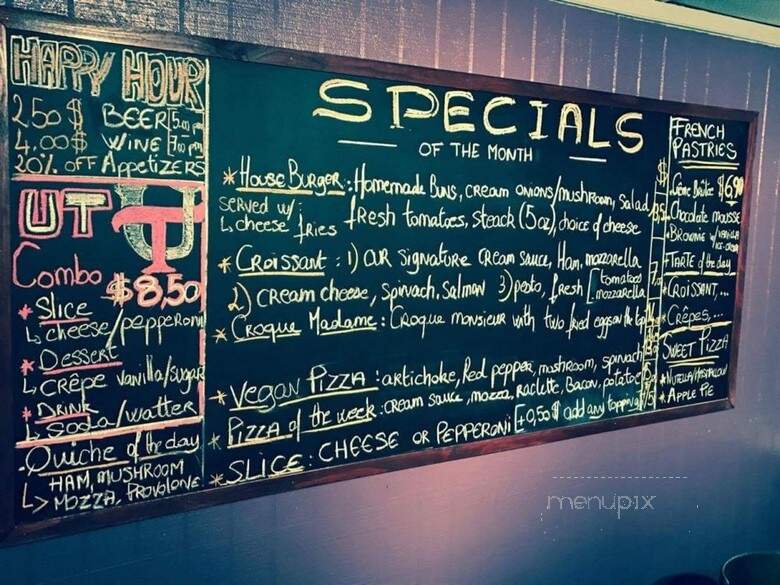 HAPPY HOUR
2.50 $ BEER 5.00 pm
4.00 $ WINE 7.00 pm
20% OFF Appetizers
UT UT
Combo $8,50
* Slice
↳ cheese/pepperoni
* Dessert
↳ Crêpe vanilla/sugar
* DRINK
↳ Soda/watter
- Quiche of the day
HAM, MUSHROOM
↳ MOZZA, PROVOLONE
SPECIALS
OF THE MONTH
* House Burger: Homemade Buns, cream onions/mushroom, Salad
served w/: fresh tomatoes, steack (5oz), choice of cheese
↳ cheese fries
* Croissant: 1) our signature cream sauce, Ham, mozzarella
2) cream cheese, Spinach, Salmon 3) pesto, fresh [tomatoes
mozzarella
* Croque Madame: Croque monsieur with two fried eggs on the top
* Vegan Pizza: artichoke, Red pepper, mushroom, spinach
* Pizza of the week: cream sauce, mozza, raclette, Bacon, potatoe
* SLICE: CHEESE OR PEPPERONI [+0,50$ add any topping]
FRENCH
PASTRIES
Crème Brûlée $6,90
Chocolate mousse
• BROWNIE w/ VANILLA
ice-cream
• TARTE of the day
• CROISSANT,...
• Crêpes,...
SWEET PIZZA
• NUTELLA/
• APPLE PIE
menupix